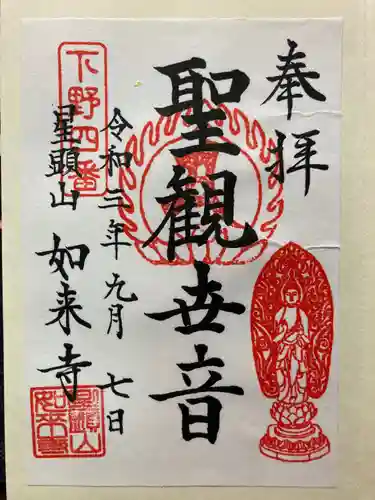 奉拝
聖観世音
令和三年九月七日
下野四番
星頭山
如来寺